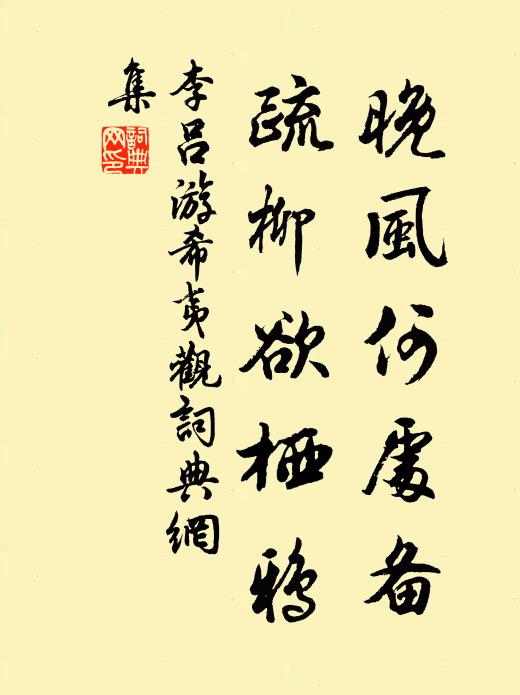 晚風何處备
疏柳欲栖鴉
李呂游希夷觀詞典網
集
詞典
网印